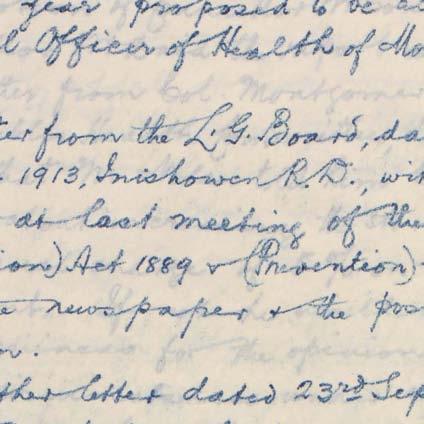 year proposed to be
l Officer of Health of Mo
ter from the L. G. Board, da
. 1913, Inishowen R.D., wit
at last meeting of the
ion) Act 1889 & (Prevention)
e newspaper & the pos
n.
ther letter dated 23rd Sep